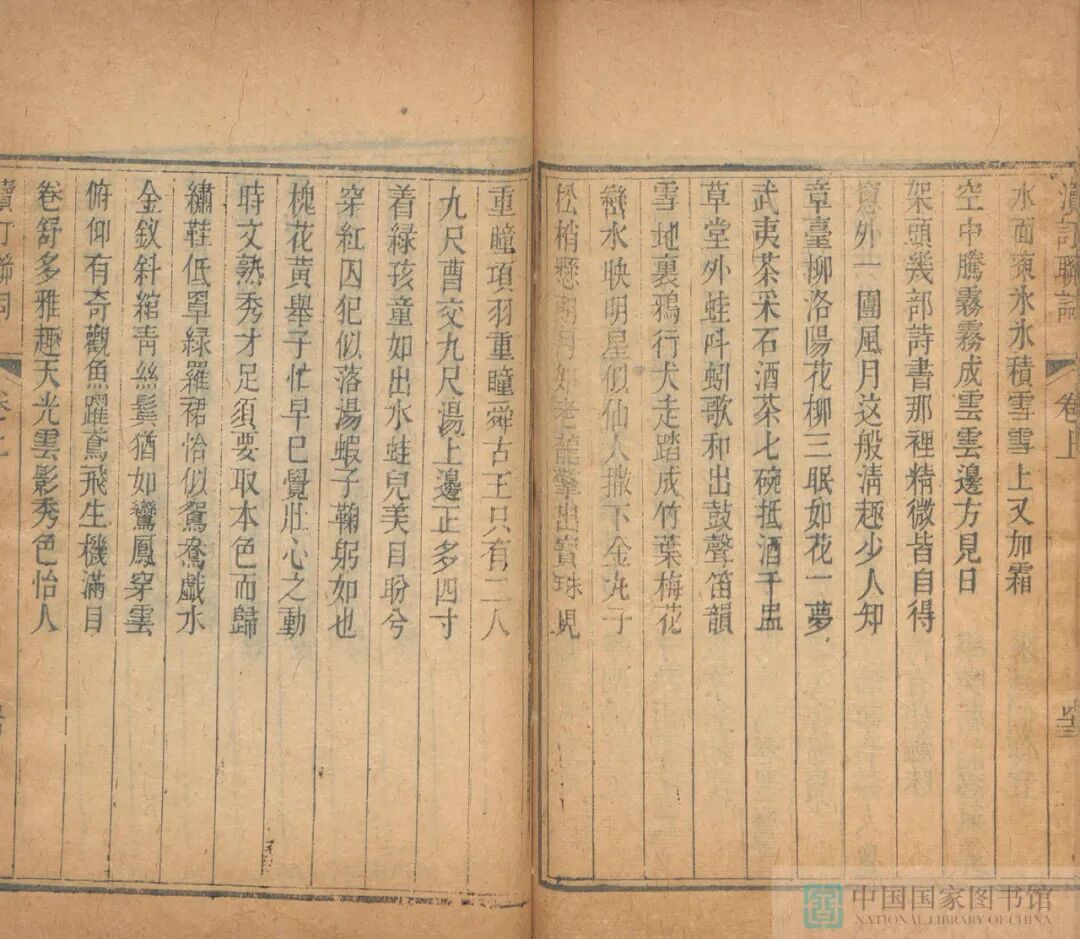 瀆訂聯詞 卷上
水面凍氷氷積雪雪上又加霜
空中騰霧霧成雲雲邊方見日
架頭幾部詩書那裡精微皆自得
窓外一團風月这般淸趣少人知
章臺柳洛陽花柳三眠如花一夢
武夷茶采石酒茶七碗抵酒千盅
草堂外蛙呌蚓歌和出鼓聲笛韻
雪地裏鴉行犬走踏成竹葉梅花
巒水映明星似仙人撒下金丸子
松梢懸朗月如老龍擎出寶珠児
重瞳項羽重瞳舜古王只有二人
九尺曹交九尺湯上邊正多四寸
着緑孩童如出水蛙兒美目盼兮
穿紅囚犯似落湯蝦子鞠躬如也
槐花黃舉子忙早巳覺壯心之動
時文熟秀才足須要取本色而歸
繡鞋低罩緑羅裙恰似鴛鴦戱水
金釵斜綰靑絲鬂猶如鸞鳳穿雲
俯仰有奇觀魚躍鳶飛生機滿目
卷舒多雅趣天光雲影秀色怡人
中国国家图书馆
NATIONAL LIBRARY OF CHINA